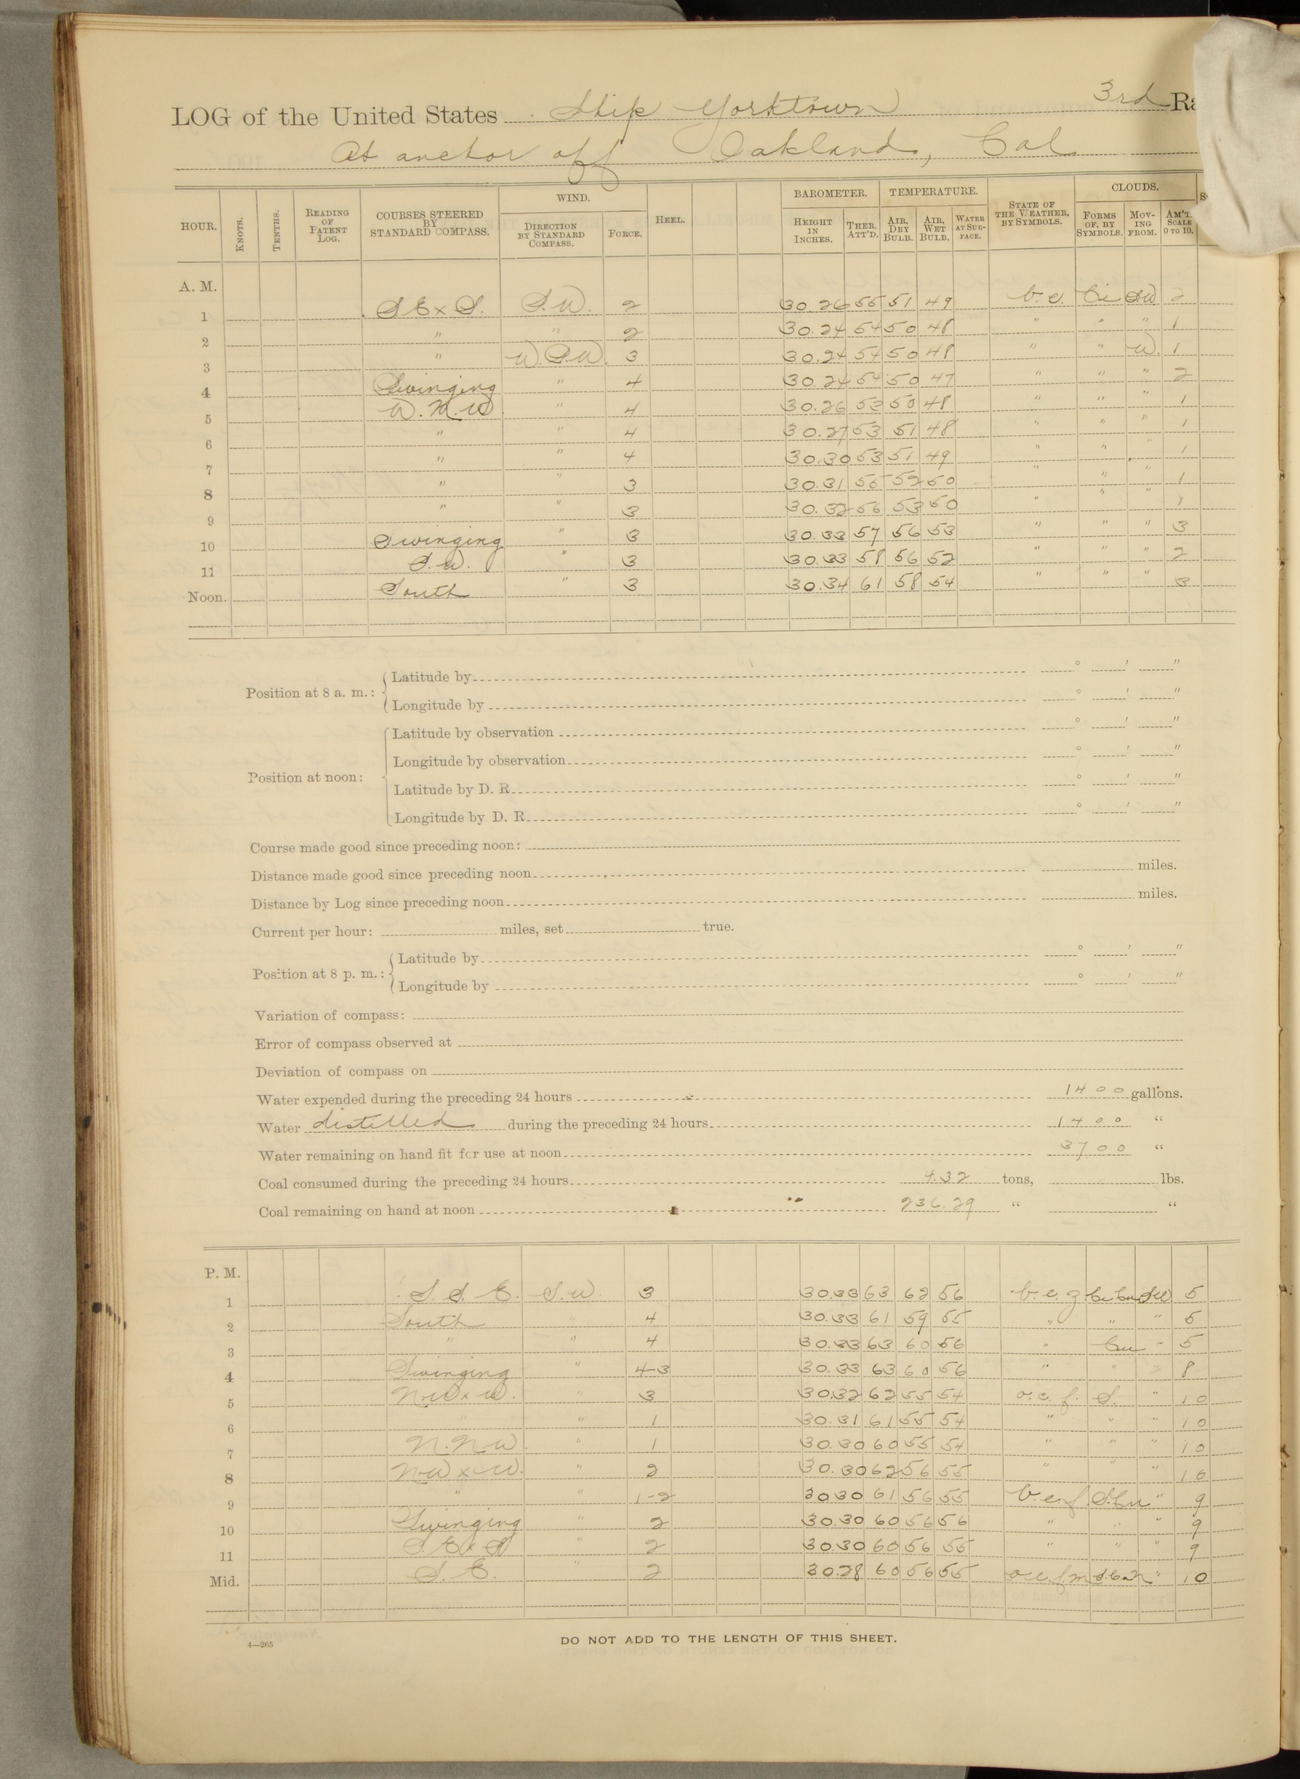 LOG of the United States Ship Yorktown 3rd Ra
At anchor off Oakland, Cal
HOUR. KNOTS. TENTHS. READING OF PATENT LOG. COURSES STEERED BY STANDARD COMPASS. WIND. DIRECTION BY STANDARD COMPASS. FORCE. HEEL. BAROMETER. HEIGHT IN INCHES. THER. ATT'D. TEMPERATURE. AIR, DRY BULB. AIR, WET BULB. WATER AT SURFACE. STATE OF THE WEATHER, BY SYMBOLS. CLOUDS. FORMS OF, BY SYMBOLS. MOVING FROM. AM'T. SCALE 0 TO 10.
A. M.
1 S E x S. S.W. 2 30.26 55 51 49 b.c. Ci SW 2
2 " " 2 30.24 54 50 48 " " " 1
3 " W S.W. 3 30.24 54 50 48 " " W. 1
4 Swinging " 4 30.24 54 50 47 " " " 2
5 W. N. W " 4 30.26 53 50 48 " " " 1
6 " " 4 30.27 53 51 48 " " " 1
7 " " 4 30.30 53 51 49 " " " 1
8 " " 3 30.31 55 52 50 " " " 1
9 " " 3 30.32 56 53 50 " " " 1
10 Swinging " 3 30.33 57 56 53 " " " 3
11 S.W. " 3 30.33 58 56 52 " " " 2
Noon. South " 3 30.34 61 58 54 " " " 3
Position at 8 a. m.: Latitude by ° ' "
Longitude by ° ' "
Position at noon: Latitude by observation ° ' "
Longitude by observation ° ' "
Latitude by D. R. ° ' "
Longitude by D. R. ° ' "
Course made good since preceding noon:
Distance made good since preceding noon miles.
Distance by Log since preceding noon miles.
Current per hour: miles, set true.
Position at 8 p. m.: Latitude by ° ' "
Longitude by ° ' "
Variation of compass:
Error of compass observed at
Deviation of compass on
Water expended during the preceding 24 hours 1400 gallons.
Water distilled during the preceding 24 hours 1400 "
Water remaining on hand fit for use at noon 3700 "
Coal consumed during the preceding 24 hours 4.32 tons, lbs.
Coal remaining on hand at noon 236.29 " "
P. M.
1 S. S. E. S.W. 3 30.33 63 62 56 b.c.z Ci Cu SW 5
2 South " 4 30.33 61 59 55 " " " 5
3 " " 4 30.33 63 60 56 " Cu " 5
4 Swinging " 4-3 30.33 63 60 56 " " 8
5 NW x W. " 3 30.32 62 55 54 o.c.f. S. " 10
6 " " 1 30.31 61 55 54 " " " 10
7 N. N W " 1 30.30 60 55 54 " " " 10
8 NW x W. " 2 30.30 62 56 55 " " " 10
9 " " 1-2 30.30 61 56 55 b.c.f. S.Cu " 9
10 Swinging " 2 30.30 60 56 56 " " " 9
11 S E x S " 2 30.30 60 56 55 " " " 9
Mid. S. E. " 2 30.28 60 56 55 o.c.f.m " 10
4—265
DO NOT ADD TO THE LENGTH OF THIS SHEET.